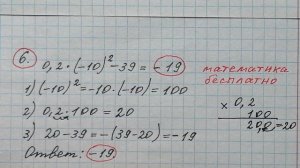 6.
0,2·(-10)²-39=-19
1) (-10)²=-10·(-10)=100
2) 0,2·100=20
3) 20-39=-(39-20)=-19
Ответ: -19
математика
бесплатно
× 0,2
100
20,0=20